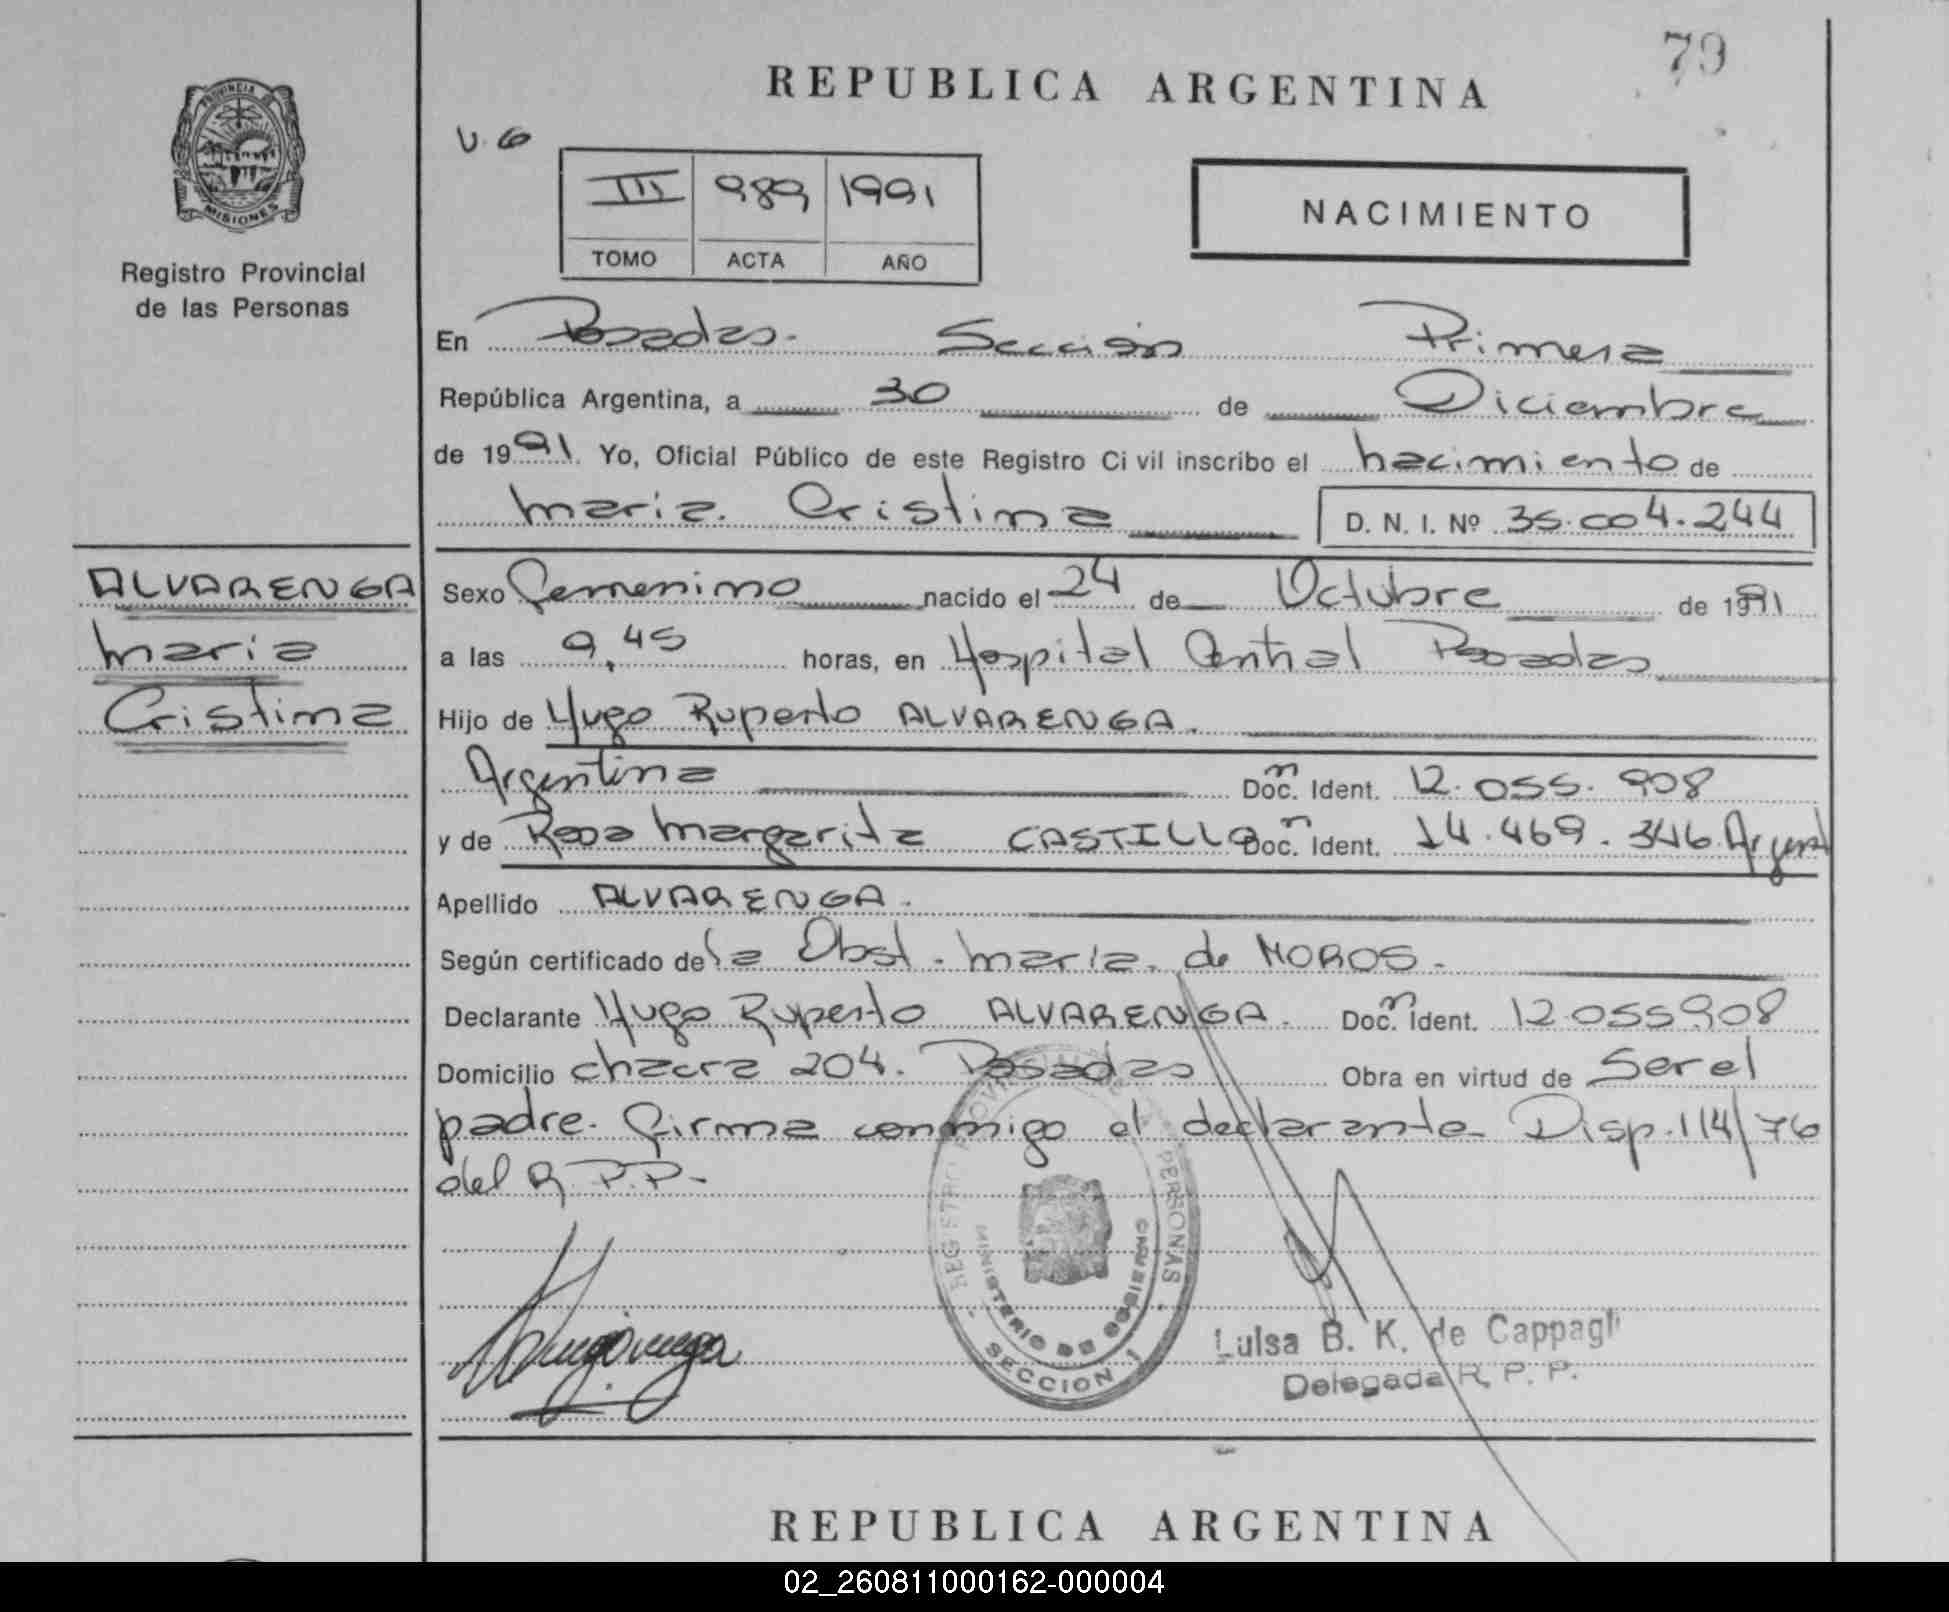 79
REPUBLICA ARGENTINA
V. G
PROVINCIA DE
MISIONES
Registro Provincial
de las Personas
III 989 1991
TOMO ACTA AÑO
NACIMIENTO
En Posadas. Sección Primera
República Argentina, a 30 de Diciembre
de 1991. Yo, Oficial Público de este Registro Ci vil inscribo el nacimiento de
Maria. Cristina D. N. I. Nº 35.004.244
ALVARENGA
Maria
Cristina
Sexo Femenino nacido el 24 de Octubre de 1991
a las 9,45 horas, en Hospital Central Posadas
Hijo de Hugo Ruperto ALVARENGA.
Argentina Docn. Ident. 12.055.908
y de Rosa Margarita CASTILLO Docn. Ident. 14.469.346 Argent
Apellido ALVARENGA.
Según certificado de la Obst. Maria. de MOROS.
Declarante Hugo Ruperto ALVARENGA. Docn. Ident. 12.055908
Domicilio chacra 204. Posadas Obra en virtud de Ser el
padre. Firma conmigo el declarante Disp. 114/76
del R.P.P.-
REGISTRO PROVINCIAL DE LAS PERSONAS
MINISTERIO DE GOBIERNO
SECCION 1
Luisa B. K. de Cappagli
Delegada R. P. P.
REPUBLICA ARGENTINA
02_260811000162-000004